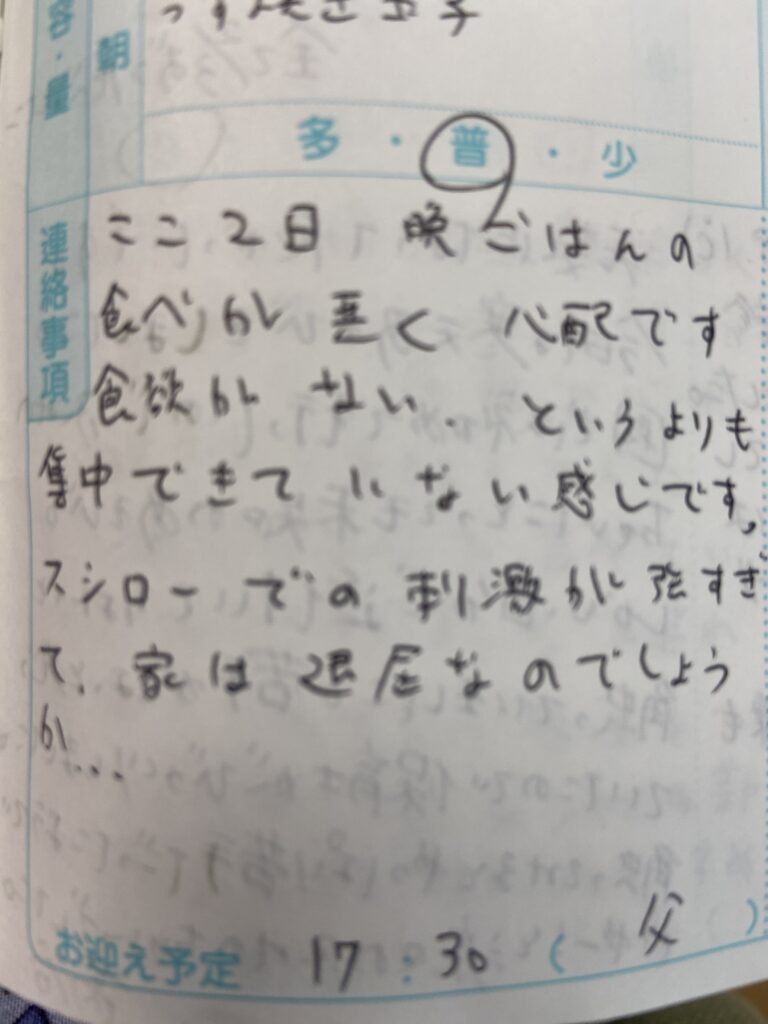 容・量
朝
多・普・少
連絡事項
ここ2日 晩ごはんの
食べが悪く 心配です
食欲がない、というよりも
集中できていない感じです。
スシローでの刺激が強すぎ
て、家は退屈なのでしょう
か...
お迎え予定 17:30(父)